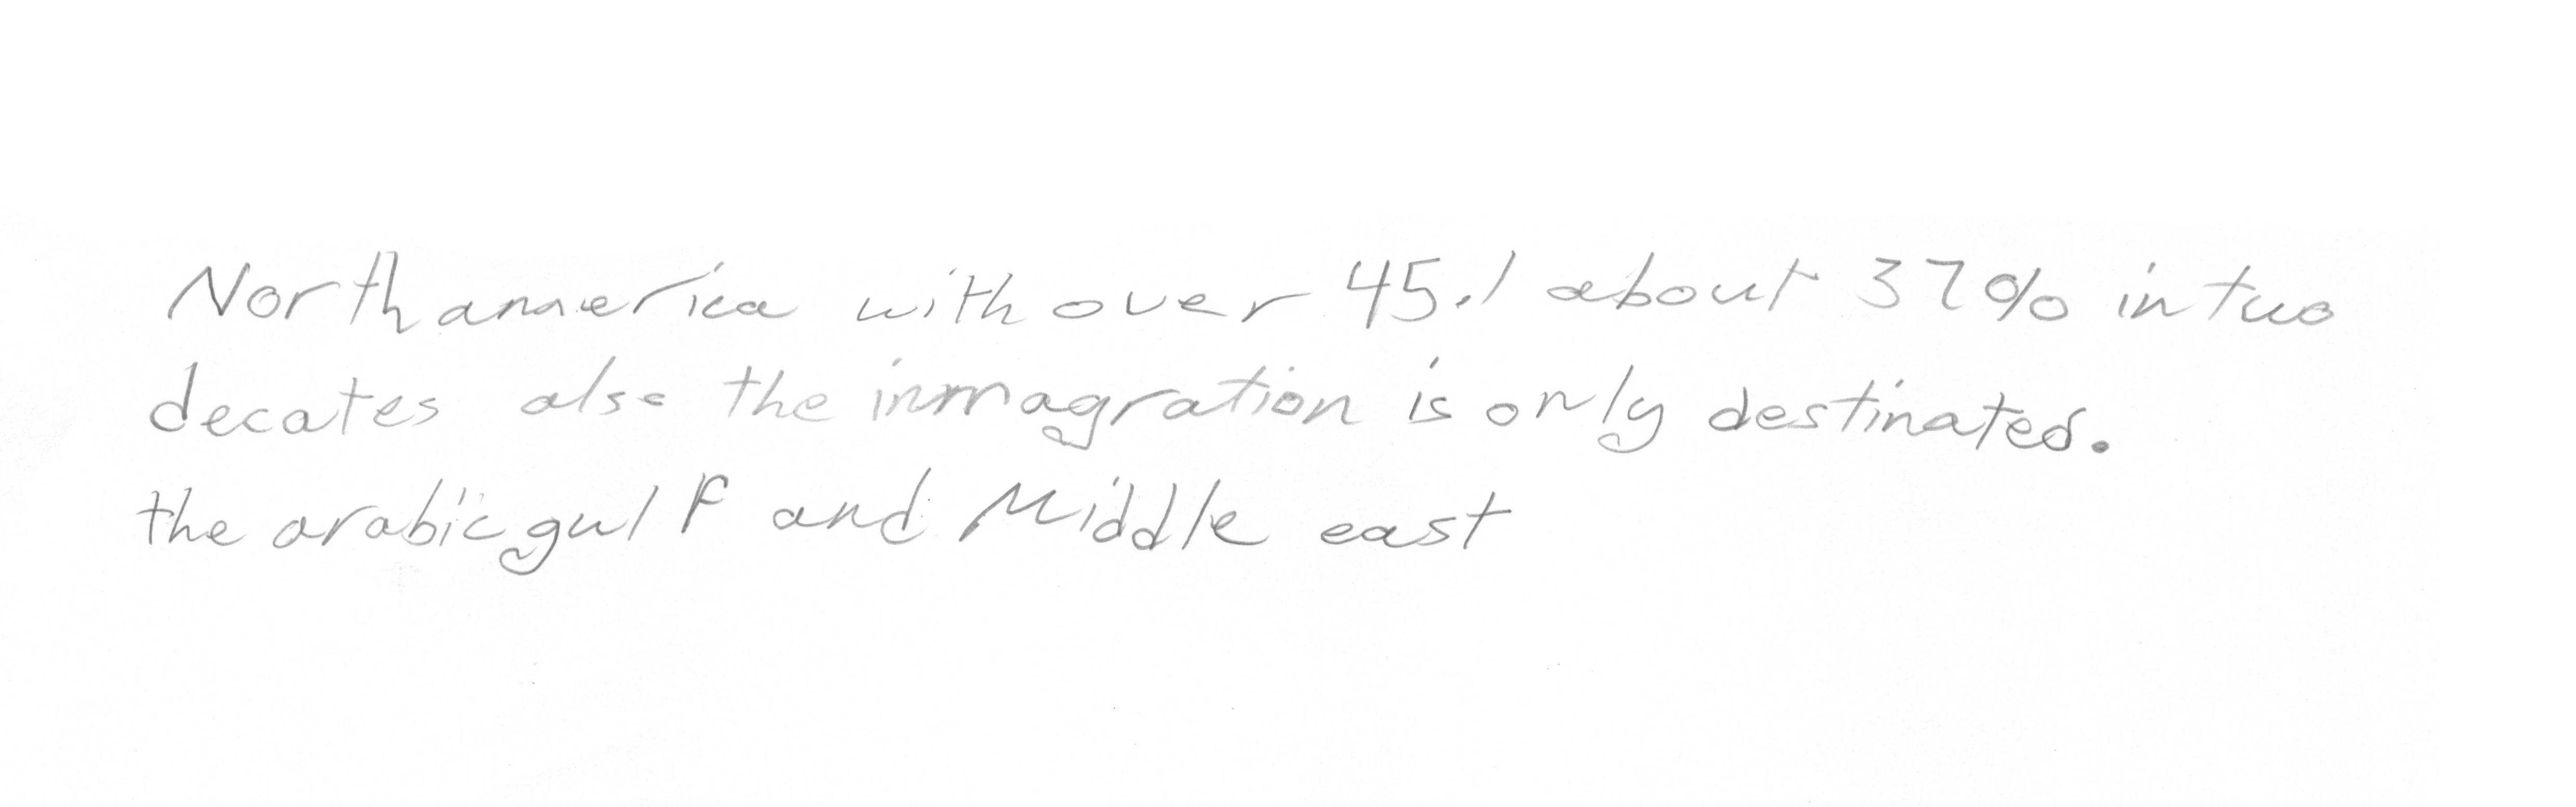 North anaerica with over 45.1 about 37% in two
decates also the inmagration is only destinated.
the arabic gulf and Middle east